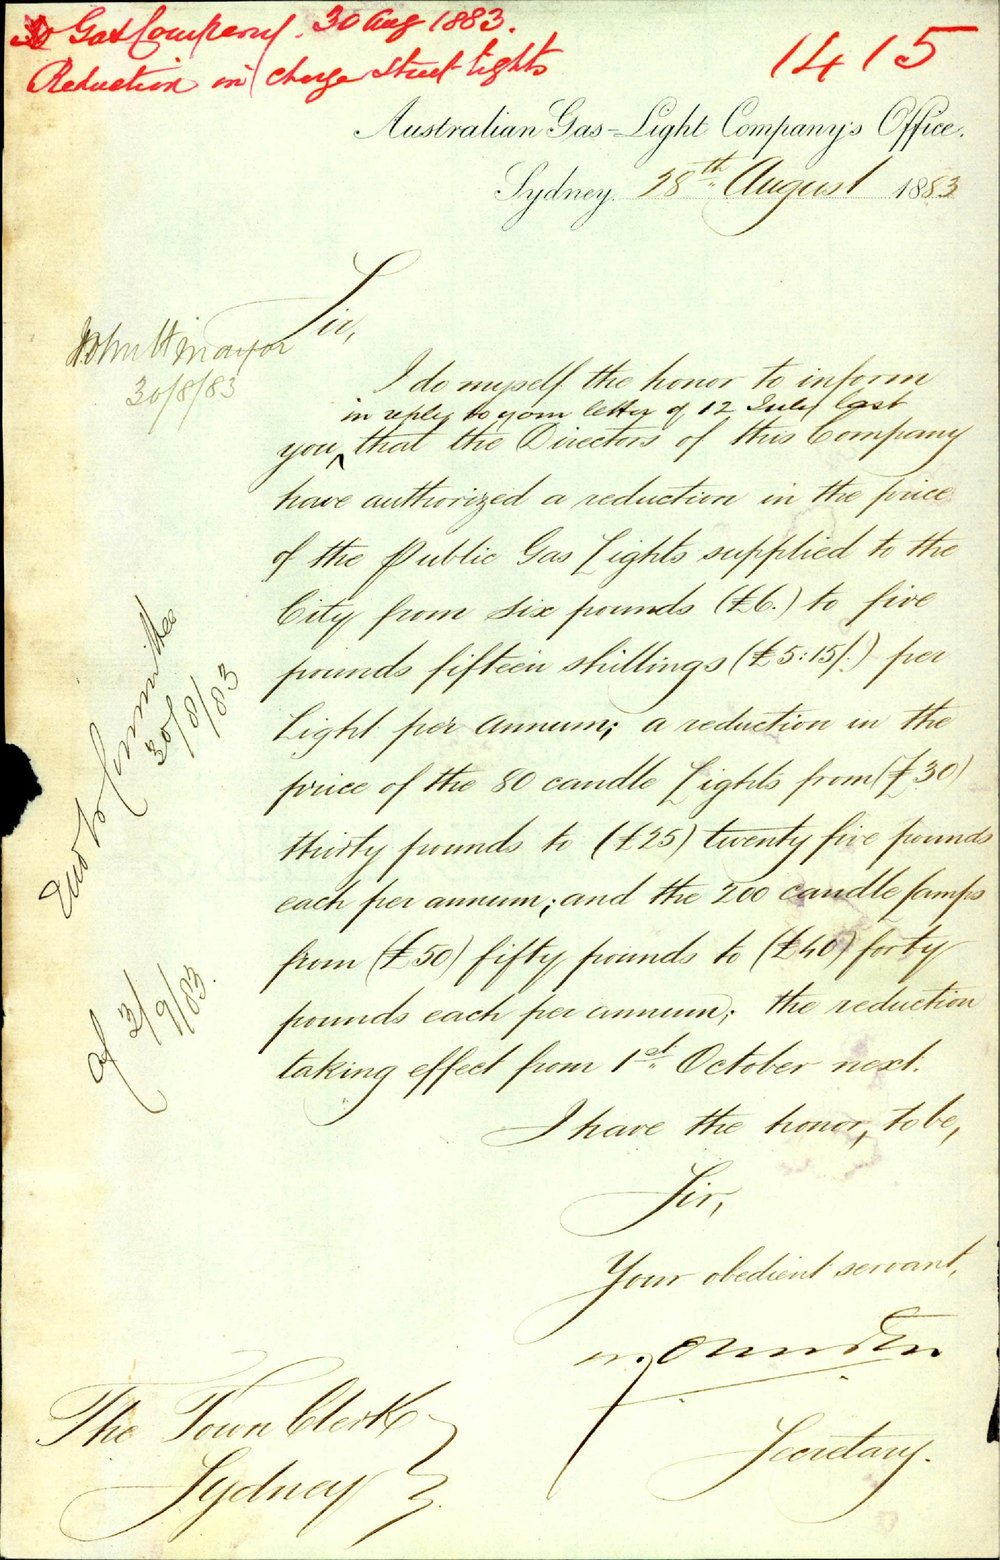 Gas Company. 30 Aug 1883.
Reduction in charge Street lights
1415
Australian Gas-Light Company's Office.
Sydney 28th August 1883
Sir,
John H mayor
30/8/83
I do myself the honor to inform
in reply to your letter of 12 July last
you, that the Directors of this Company
have authorized a reduction in the price
of the Public Gas Lights supplied to the
City from six pounds (£6.) to five
pounds fifteen shillings (£5:15/.) per
Light per annum; a reduction in the
price of the 80 candle Lights from (£30)
thirty pounds to (£25) twenty five pounds
each per annum; and the 200 candle lamps
from (£50) fifty pounds to (£40) forty
pounds each per annum; the reduction
taking effect from 1st October next.
Committee
30/8/83
3/9/83.
I have the honor, to be,
Sir,
Your obedient servant,
Secretary.
The Town Clerk
Sydney